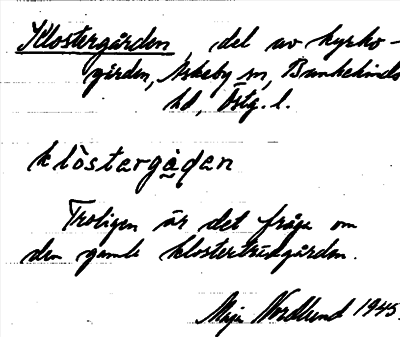 Klostergården, del av kyrko-
gården, Askeby sn, Bankekinds
hd, Östg. l.
klòstergå̀ḍen
Troligen är det fråga om
den gamla klosterträdgården.
Maja Nordlund 1945.